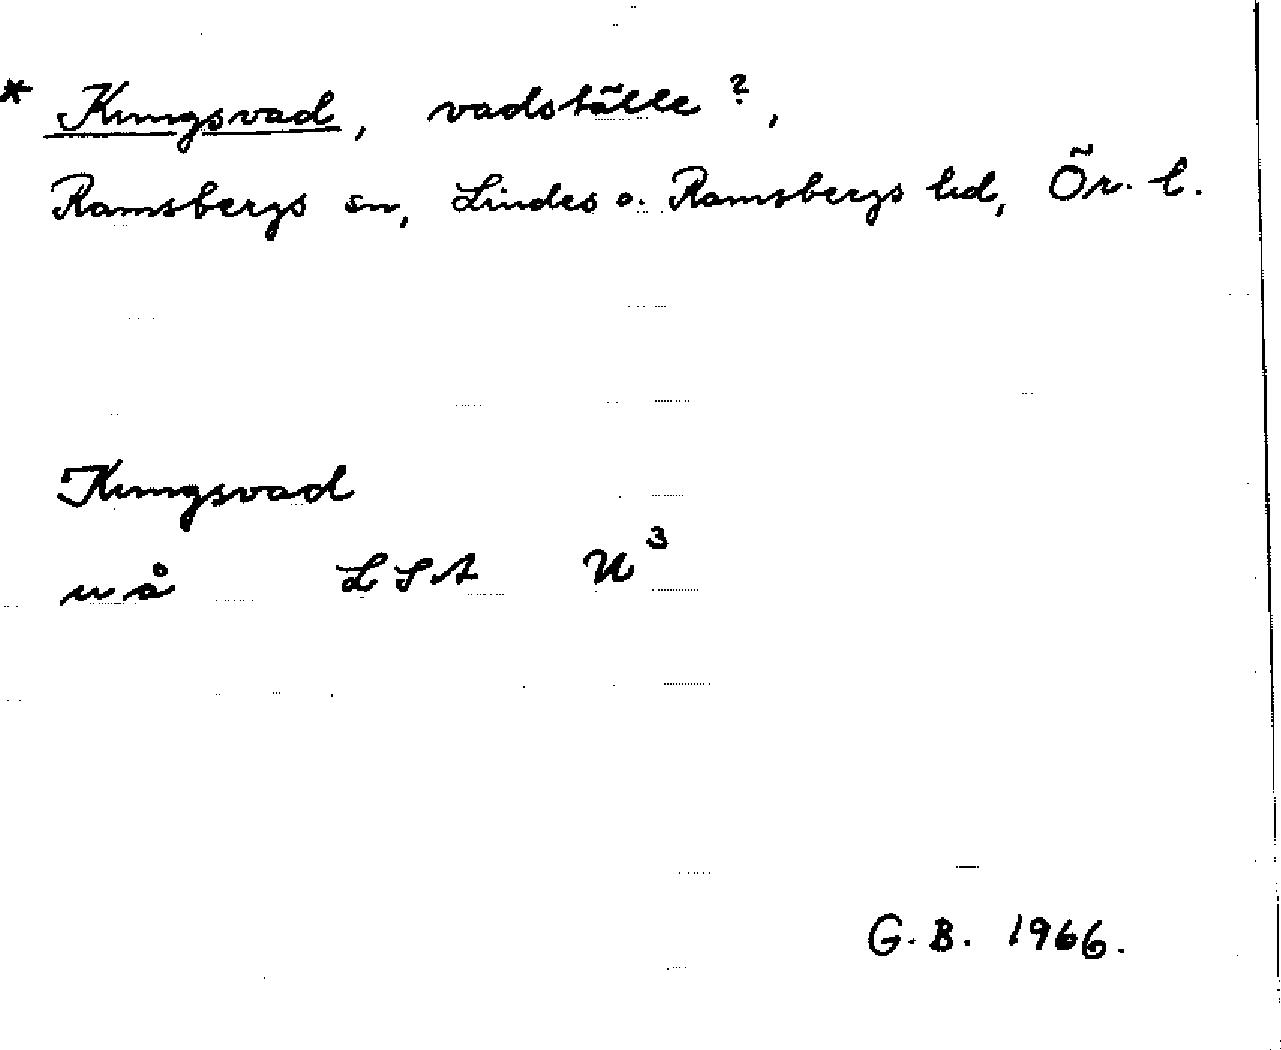 * Kungsvad, vadställe?,
Ramsbergs sn, Lindes o. Ramsbergs hd, Ör. l.
Kungsvad
u å LSA U³
G. B. 1966.